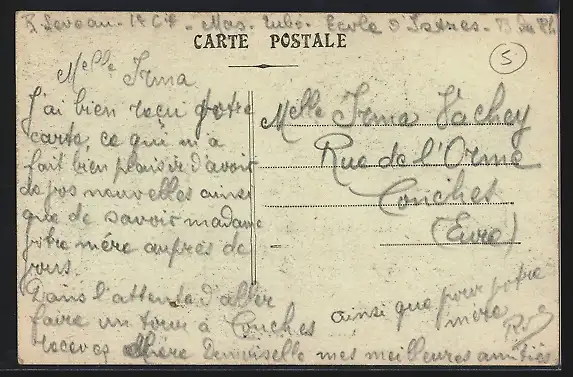 R. Leveau - 1e Cie - Mas. Tubé - Ecole d'Istres -
5
CARTE POSTALE
Melle Irma
J'ai bien reçu votre
carte, ce qui m'a
fait bien plaisir d'avoir
de vos nouvelles ainsi
que de savoir madame
votre mère auprès de
vous.
Dans l'attente d'aller
faire un tour à Conches
recevez chère Demoiselle mes meilleures amitiés
ainsi que pour votre
mère
Melle Irma Vachey
Rue de l'Orme
Conches
(Eure)